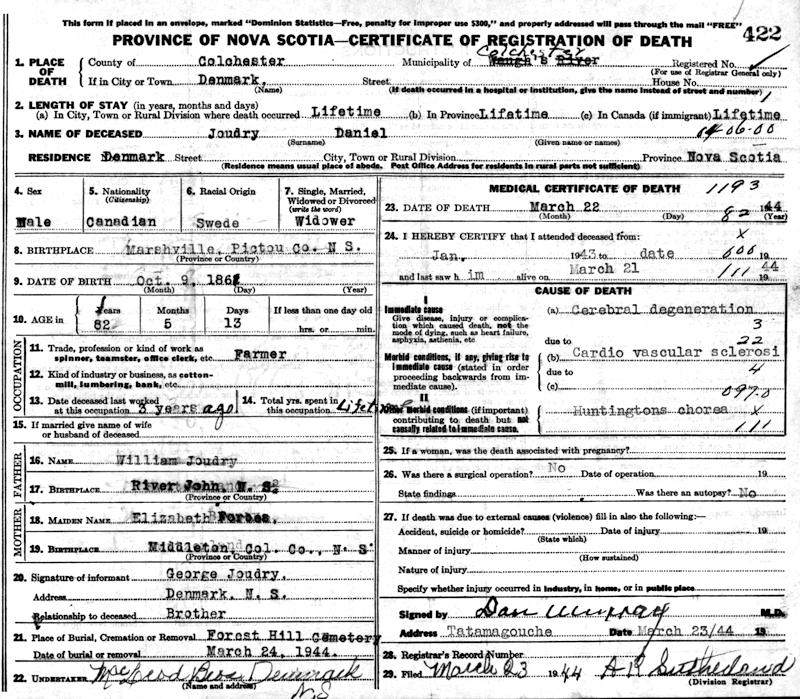 This form if placed in an envelope, marked "Dominion Statistics—Free, penalty for improper use $300," and properly addressed will pass through the mail "FREE"
422
PROVINCE OF NOVA SCOTIA—CERTIFICATE OF REGISTRATION OF DEATH
1. PLACE OF DEATH
County of Colchester
Municipality of Waugh's River Colchester
Registered No.
(For use of Registrar General only)
If in City or Town Denmark,
(Name)
Street
House No.
(If death occurred in a hospital or institution, give the name instead of street and number)
2. LENGTH OF STAY (in years, months and days)
(a) In City, Town or Rural Division where death occurred Lifetime (b) In Province Lifetime (c) In Canada (if immigrant) Lifetime
3. NAME OF DECEASED Joudry Daniel
(Surname) (Given name or names)
RESIDENCE Denmark Street City, Town or Rural Division Province Nova Scotia
(Residence means usual place of abode. Post Office Address for residents in rural parts not sufficient)
4. Sex
Male
5. Nationality (Citizenship)
Canadian
6. Racial Origin
Swede
7. Single, Married, Widowed or Divorced (write the word)
Widower
8. BIRTHPLACE Marshville, Pictou Co. N S.
(Province or Country)
9. DATE OF BIRTH Oct. 9,
(Month) (Day) (Year)
10. AGE in
Years 82
Months 5
Days 13
If less than one day old
hrs. or min.
OCCUPATION
11. Trade, profession or kind of work as spinner, teamster, office clerk, etc. Farmer
12. Kind of industry or business, as cotton-mill, lumbering, bank, etc.
13. Date deceased last worked at this occupation 3 years ago
14. Total yrs. spent in this occupation Lifetime
15. If married give name of wife or husband of deceased
FATHER
16. NAME William Joudry
17. BIRTHPLACE River John, N. S.
(Province or Country)
MOTHER
18. MAIDEN NAME Elizabeth Forbes
19. BIRTHPLACE Middleton Col. Co., N. S.
(Province or Country)
20. Signature of informant George Joudry.
Address Denmark, N. S.
Relationship to deceased Brother
21. Place of Burial, Cremation or Removal Forest Hill Cemetery
Date of burial or removal March 24, 1944.
22. UNDERTAKER McLeod Bros. Denmark
(Name and address)
N.S
MEDICAL CERTIFICATE OF DEATH
1193
23. DATE OF DEATH March 22 1944
(Month) (Day) (Year)
82
24. I HEREBY CERTIFY that I attended deceased from:
X
Jan. 1943 to date 19
600
and last saw h im alive on March 21 19 44
111
CAUSE OF DEATH
I
Immediate cause
Give disease, injury or complication which caused death, not the mode of dying, such as heart failure, asphyxia, asthenia, etc
(a) Cerebral degeneration
3
due to
22
Morbid conditions, if any, giving rise to immediate cause (stated in order proceeding backwards from immediate cause).
(b) Cardio vascular sclerosi
due to
4
(c)
097.0
II
Other morbid conditions (if important) contributing to death but not causally related to immediate cause.
Huntingtons chorea
X
111
25. If a woman, was the death associated with pregnancy?
26. Was there a surgical operation? No Date of operation 19
State findings Was there an autopsy? No
27. If death was due to external causes (violence) fill in also the following:—
Accident, suicide or homicide? Date of injury 19
(State which)
Manner of injury
(How sustained)
Nature of injury
Specify whether injury occurred in industry, in home, or in public place
Signed by Dan Murray M.D.
Address Tatamagouche Date March 23/44 19
28. Registrar's Record Number
29. Filed March 23 1944 A R Sutherland
(Division Registrar)